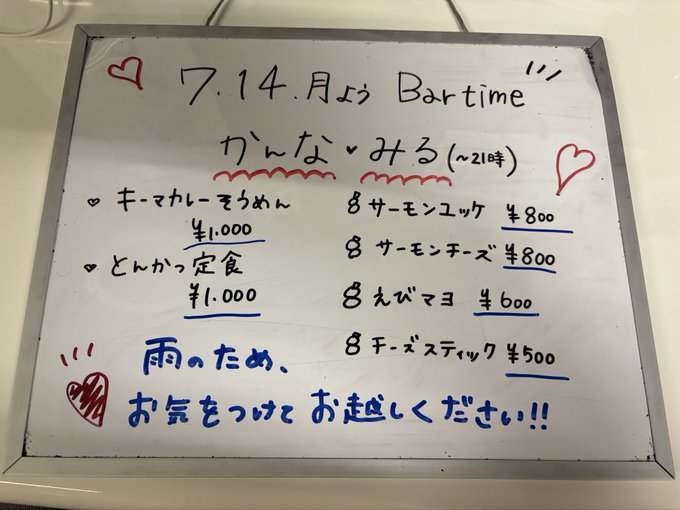 7.14.月よう Bartime
かんな・みる(〜21時)
キーマカレーそうめん
¥1.000
とんかつ定食
¥1.000
サーモンユッケ ¥800
サーモンチーズ ¥800
えびマヨ ¥600
チーズスティック ¥500
雨のため、
お気をつけてお越しください!!